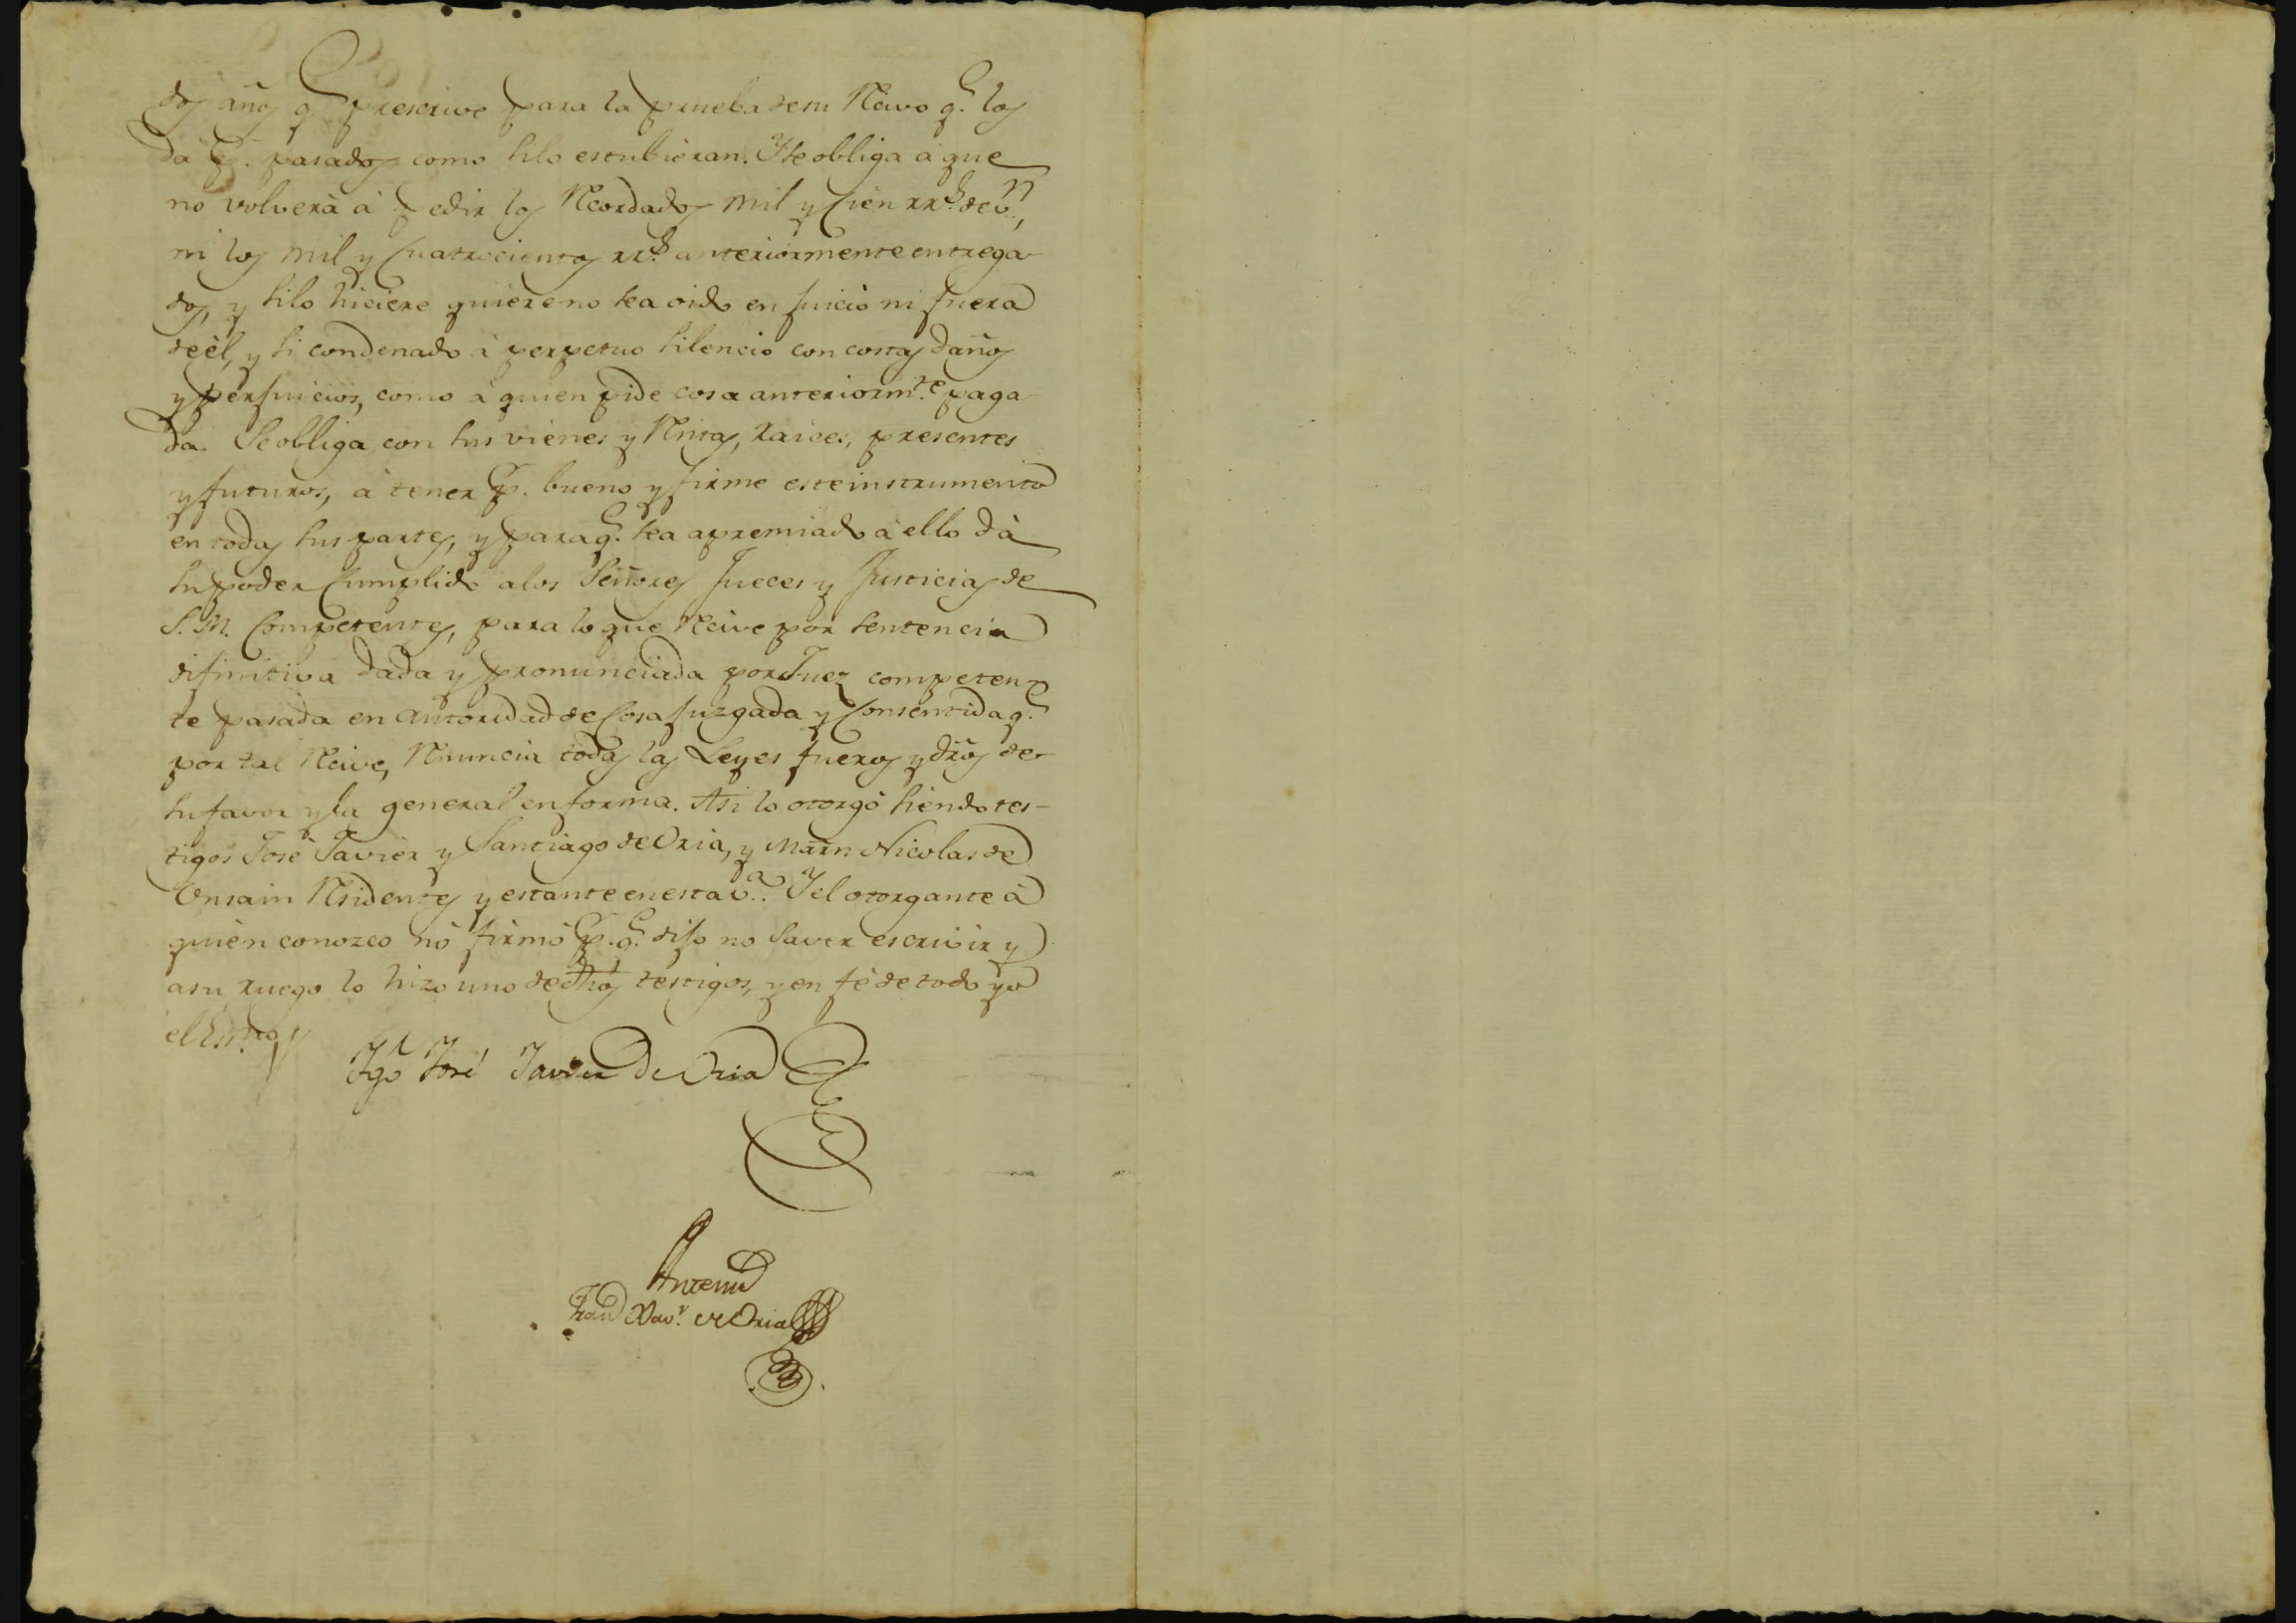 dos años q.e prescrive para la prueba de su Recivo q.e los
dá p.r pasados como si lo estubieran. Y se obliga á que
no volverá á pedir los Recordados mil y Cien rr.s de v.n,
ni los mil y Cuatrocientos rr.s anteriormente entrega-
dos, y si lo hiciere quiere no sea oido en juicio ni fuera
de él, y si condenado á perpetuo silencio con costas daños
y perjuicios, como á quien pide cosa anteriorm.te paga
da. Se obliga con sus vienes y Rentas, raices, presentes
y futuros, á tener p.r bueno y firme este instrumento
en todas sus partes, y para q.e sea apremiado á ello dá
su poder Cumplido a los Señores Jueces y Justicias de
S. M. Competentes, para lo que Recive por sentencia
difinitiva dada y pronunciada por Juez competen-
te pasada en autoridad de Cosa juzgada y Consentida q.e
por tal Recive, Renuncia todas las Leyes fueros y dros de
su favor y la general en forma. Asi lo otorgó siendo tes-
tigos José Javier y Santiago de Oria, y Martn Nicolas de
Unsain Residentes y estante en esta v.a. Y el otorgante á
quien conozco nó firmó p.r q.e dijo no saver escrivir y
a su ruego lo hizo uno de dhos testigos, y en fé de todo yo
el Ess.no
Tgo José Javier de Oria
Antemi
Fran.co Xav.r de Oria